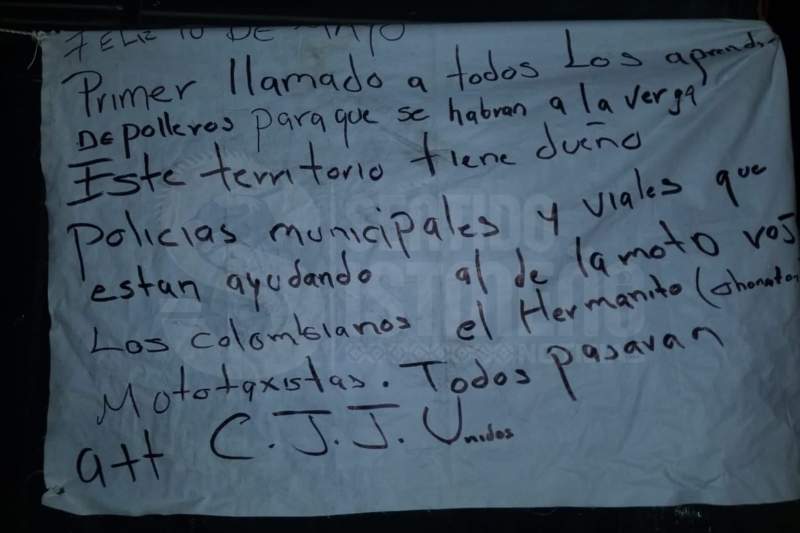 FELIZ 10 DE MAYO
Primer llamado a todos Los
De polleros para que se habran a la verga
Este territorio tiene dueño
policias municipales y viales que
estan ayudando al de la moto
Los colombianos el Hermanito (
Mototaxistas. Todos pasaran
att C.J.J. Unidos
SENTIDO